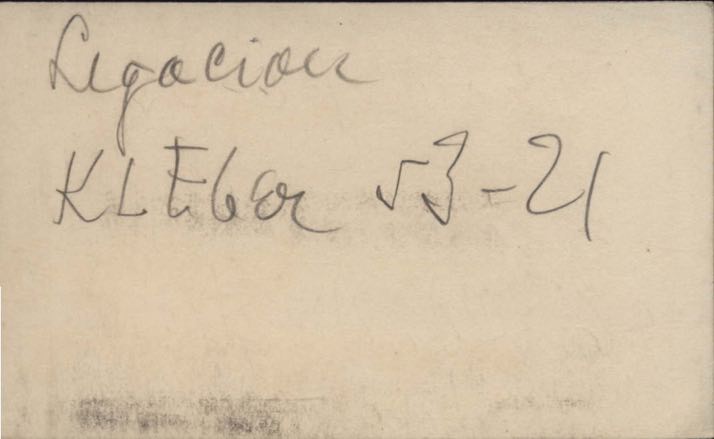 Legacion
KLEber 53-21